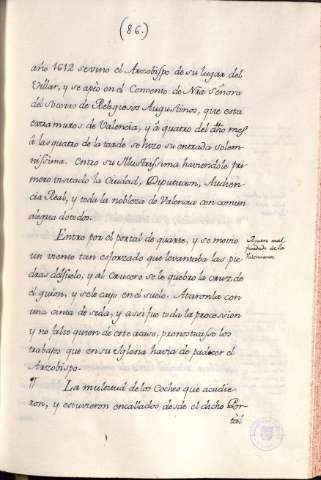 (86.)
año 1612 se vino el Arzobispo de su lugar del
Villar, y se apeò en el Convento de Nra Señora
del Socorro de Religiosos Augustinos, que esta
extra muros de Valencia, y à quatro del dho mes
à las quatro de la tarde se hizo su entrada solem-
nissima. Entrò su Illustrissima haviendole pri-
mero visitado la Ciudad, Diputacion, Audien-
cia Real, y toda la nobleza de Valencia con comun
alegria de todos.
Entrò por el portal de quarte, y se moviò
un viento tan esforzado que levantaba las pie-
dras del suelo, y al Crucero se le quebrò la cruz de
el guion, y se le cayò en el suelo. Ataronla con
una cinta de seda, y assi fue toda la procession
y no faltò quien de este acaso, pronosticasse los
trabajos que en su Iglesia havia de padecer el
Arzobispo.
¶ La multitud de los Coches que acudie-
ron, y estuvieron encallados, desde el dicho Por-
tàl